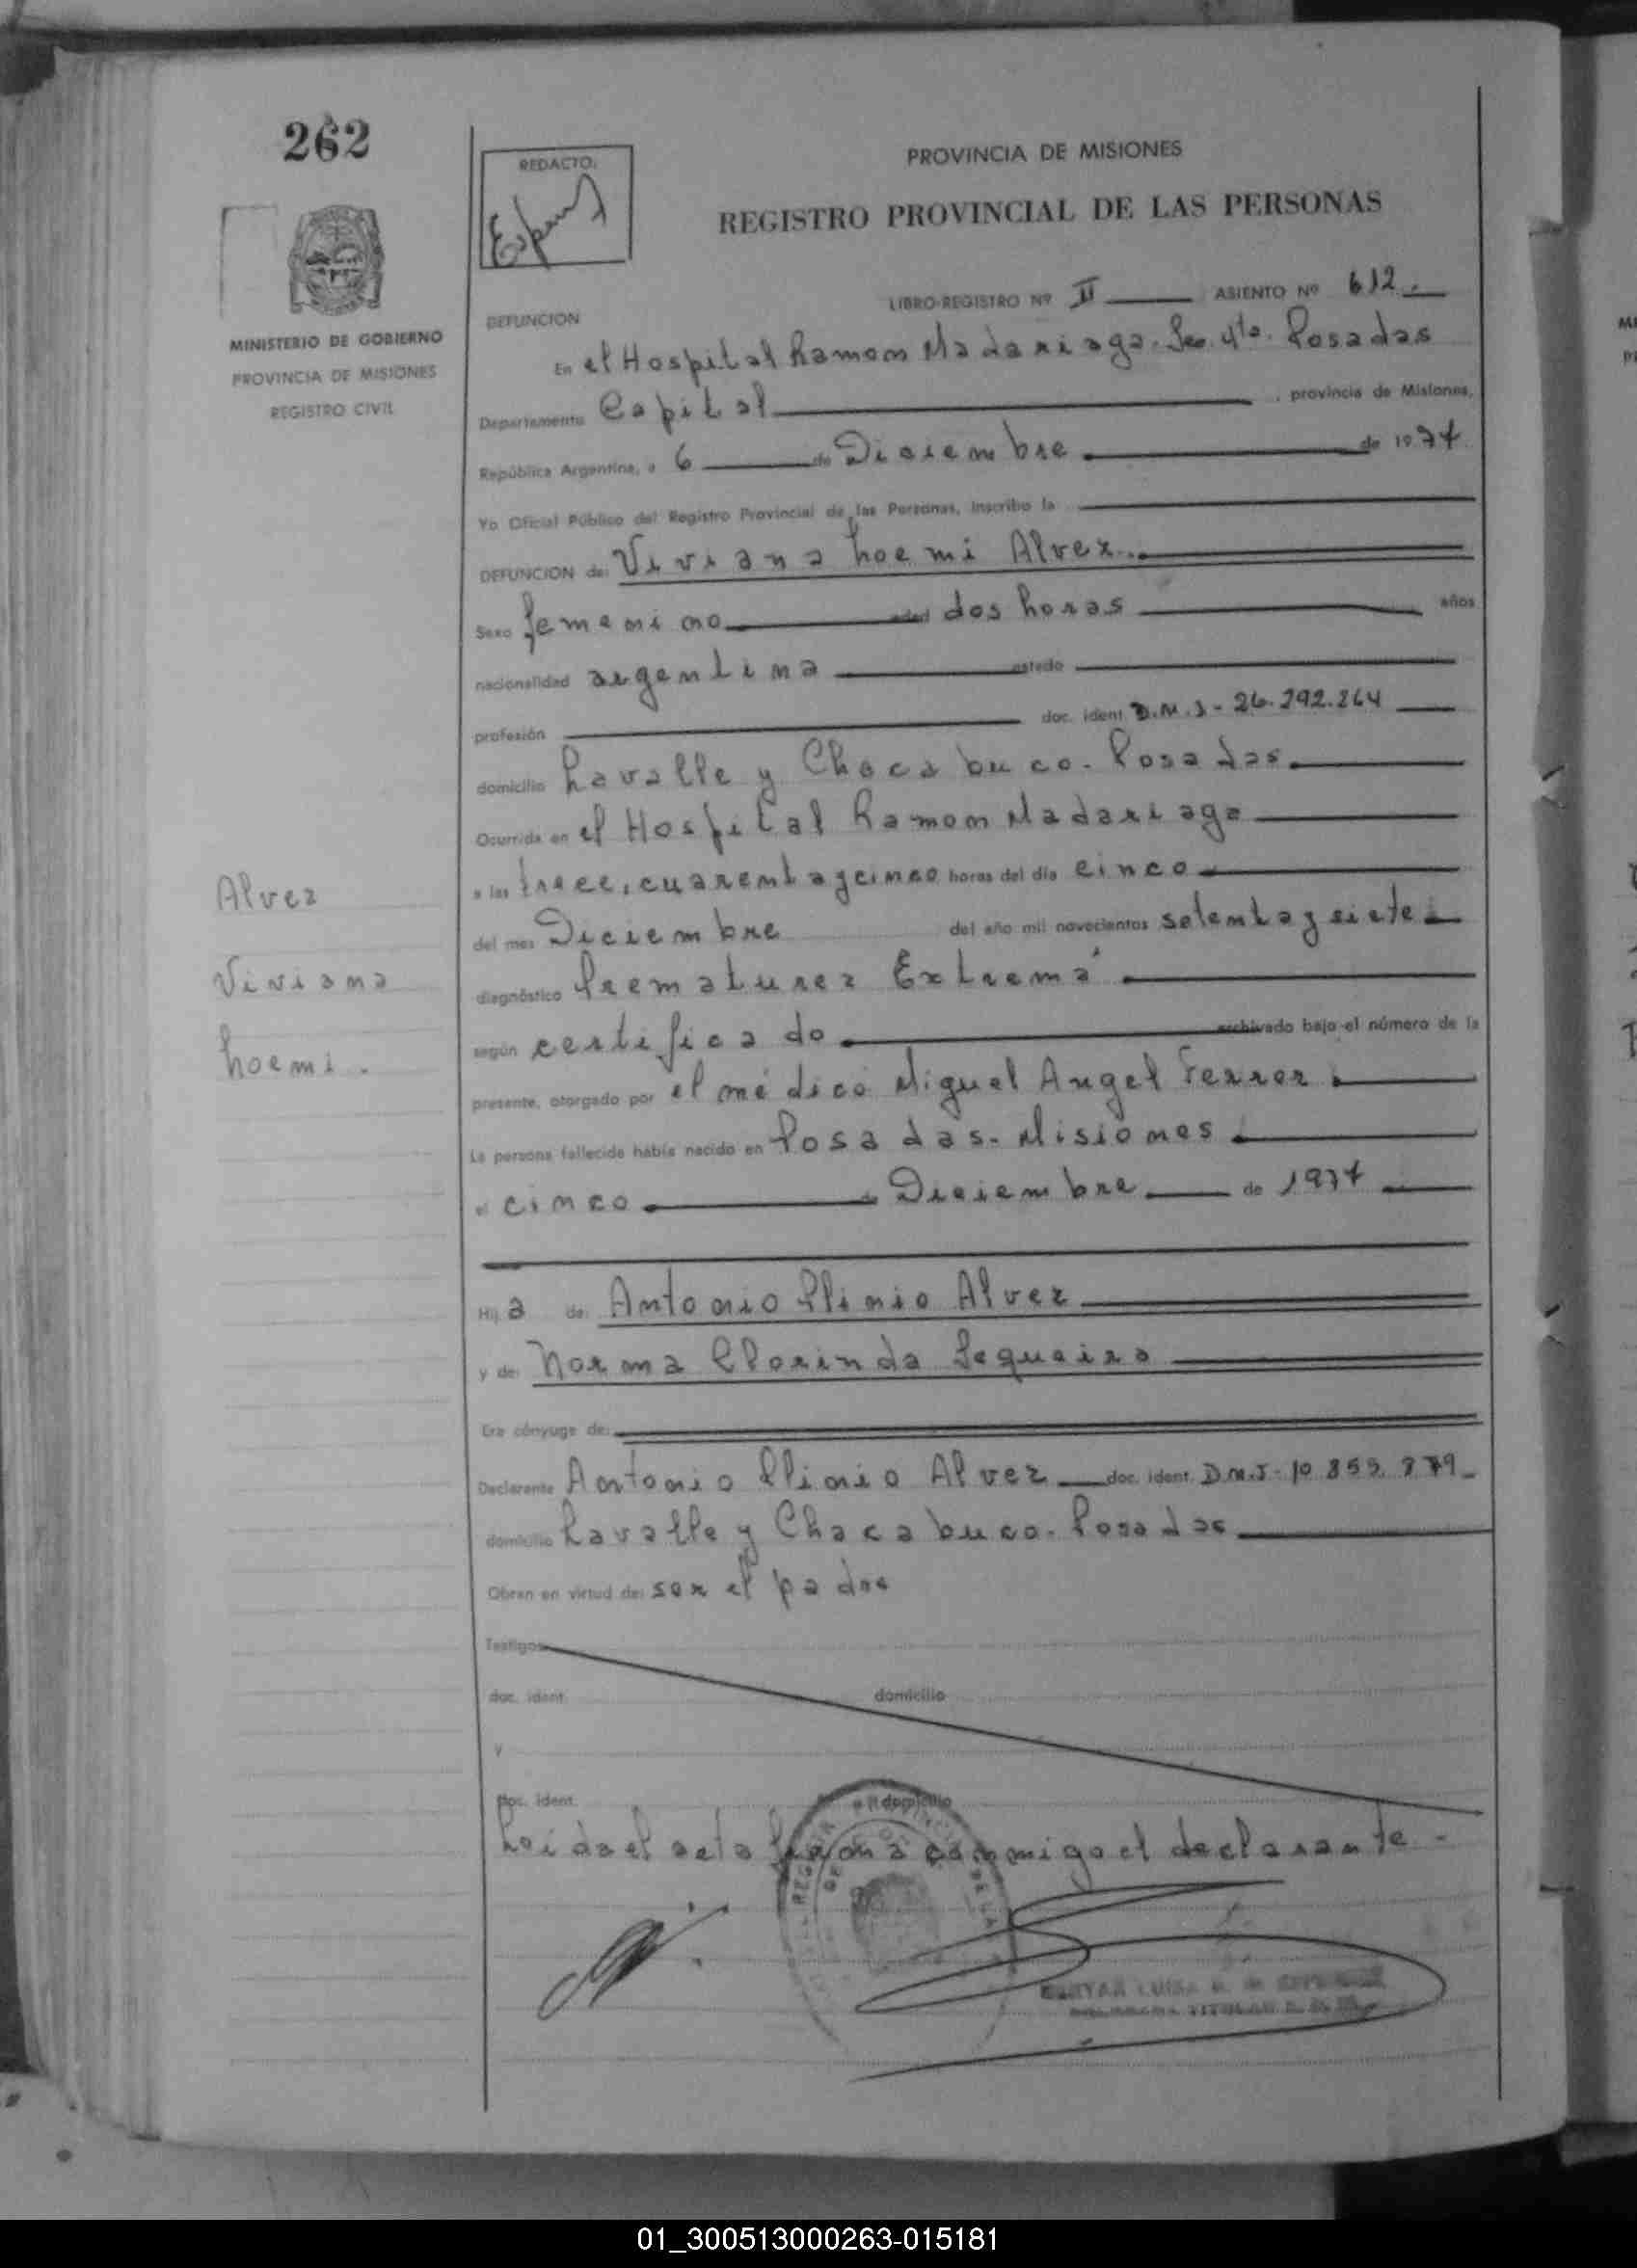 262
REDACTO:
PROVINCIA DE MISIONES
REGISTRO PROVINCIAL DE LAS PERSONAS
MINISTERIO DE GOBIERNO
PROVINCIA DE MISIONES
REGISTRO CIVIL
LIBRO-REGISTRO Nº II ASIENTO Nº 612.
DEFUNCION
En el Hospital Ramon Madariaga. Sec. 4ta. Posadas
Departamento Capital, provincia de Misiones,
República Argentina, a 6 de Diciembre de 1977
Yo Oficial Público del Registro Provincial de las Personas, Inscribo la
DEFUNCION de: Viviana Noemi Alvez.
Sexo femenino edad dos horas años
nacionalidad argentina estado
profesión doc. ident. D.N.I - 26.292.264
domicilio Lavalle y Chacabuco. Posadas
Ocurrida en el Hospital Ramon Madariaga
a las trece, cuarenta y cinco horas del día cinco
del mes Diciembre del año mil novecientos setenta y siete
diagnóstico Prematurez Extrema
según certificado archivado bajo el número de la
presente, otorgado por el médico Miguel Angel Ferrer
La persona fallecida había nacido en Posadas - Misiones
el cinco de Diciembre de 1977
Alvez
Viviana
Noemi.
Hija de: Antonio Plinio Alvez
y de: Norma Clorinda Sequeira
Era cónyuge de:
Declarante Antonio Plinio Alvez doc. ident. D.N.I - 10.855.879
domicilio Lavalle y Chacabuco. Posadas
Obran en virtud de: ser el padre
Testigos
doc. ident. domicilio
y
doc. ident. domicilio
Leida el acta firma conmigo el declarante -
01_300513000263-015181